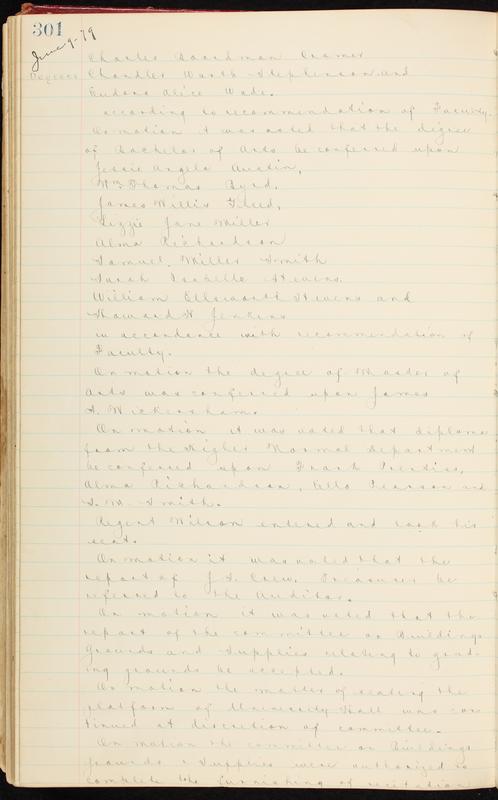 301
June 9-79
Charles Boardman Cramer
Degrees Chandler Worth Stephenson and
Eudora Alice Wade.
according to recommendation of Faculty.
On motion it was voted that the degree
of Bachelor of Arts be conferred upon
Jessie Angela Austin,
Wm Thomas Byrd.
James Willis
Lizzie Jane Miller
Alma Richardson
Samuel Miller Smith
Sarah Isabelle Stevens.
William Ellsworth Stevens and
Howard N Jenkins
in accordance with recommendation of
Faculty.
On motion the degree of Master of
Arts was conferred upon James
A. Wickersham.
On motion it was voted that diploma
from the Higher Normal Department
be conferred upon Frank Prentiss,
Alma Richardson, Ella Pearson and
S. M. Smith.
Regent Wilson entered and took his
seat.
On motion it was voted that the
report of J. S. Crew, Treasurer be
referred to the Auditor.
On motion it was voted that the
report of the committee on Buildings
Grounds and Supplies relating to grad-
ing grounds be accepted.
On motion the matter of seating the
platform of University Hall was con
tinued at discretion of committee.
On motion the committee on Buildings
Grounds & Supplies were authorized to
complete the furnishing of recitation